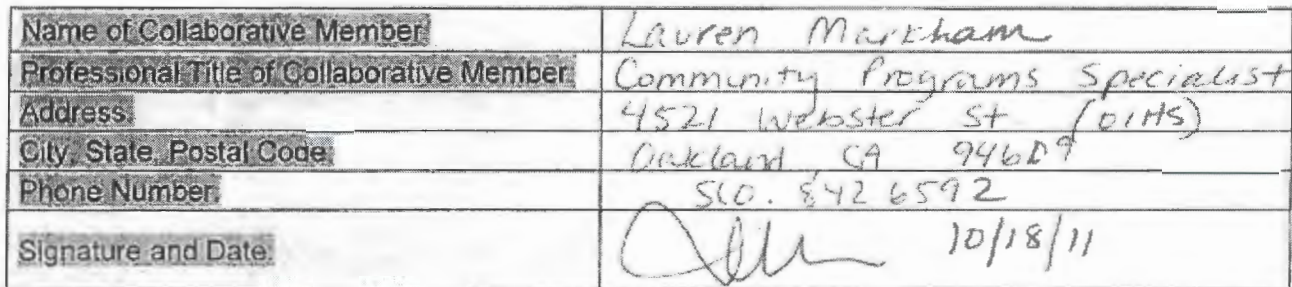 Name of Collaborative Member: Lauren Markham
Professional Title of Collaborative Member: Community Programs Specialist
Address: 4521 Webster St (OIHS)
City, State, Postal Code: Oakland, CA 94609
Phone Number: 510. 842 6592
Signature and Date: 10/18/11